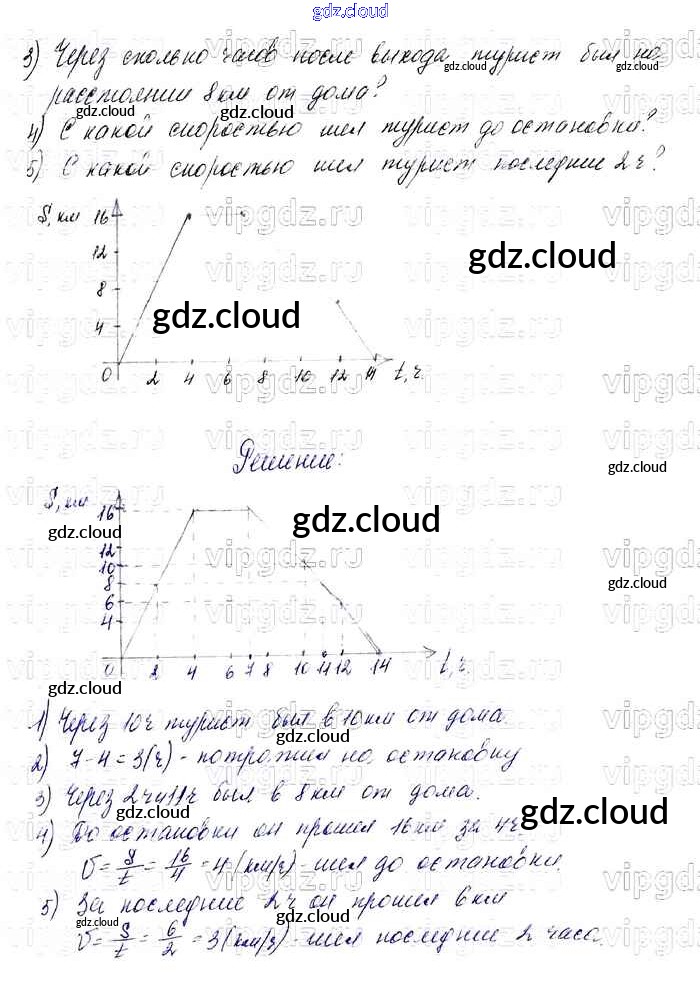 gdz.cloud
3) Через сколько часов после выхода турист был на
расстоянии 8 км от дома?
4) С какой скоростью шел турист до остановки?
5) С какой скоростью шел турист последние 2 ч?
S, км 16
12
8
4
0 2 4 6 8 10 12 14 t, ч.
Решение:
S, км
16
12
10
8
6
4
0 2 4 6 7 8 10 11 12 14 t, ч.
1) Через 10 ч турист был в 10 км от дома.
2) 7-4=3(ч) - потратил на остановку
3) Через 2 ч и 11 ч был в 8 км от дома.
4) До остановки он прошел 16 км за 4 ч.
V = S/t = 16/4 = 4 (км/ч) - шел до остановки.
5) За последние 2 ч он прошел 6 км
V = S/t = 6/2 = 3 (км/ч) - шел последние 2 часа.